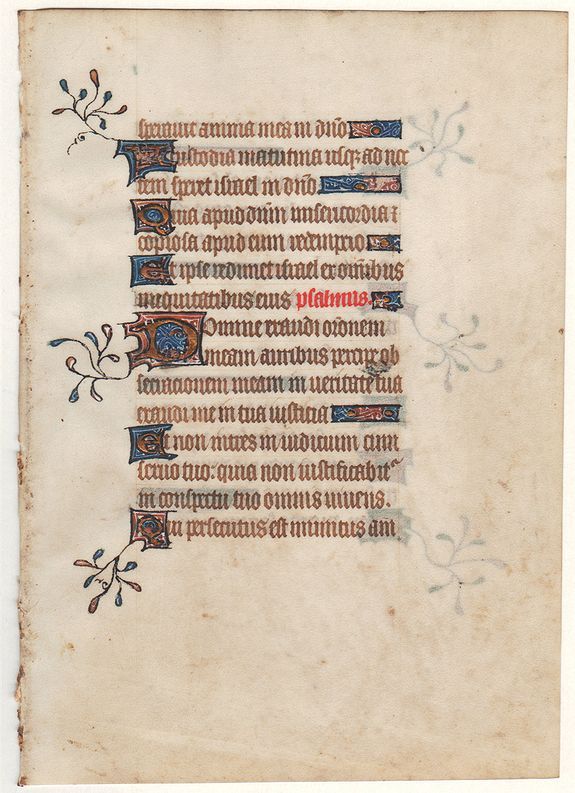 sperauit anima mea in dño
A custodia matutina usq; ad noc
tem speret israel in dño.
Quia apud dñm misericordia ⁊
copiosa apud eum redempcio
Et ipse redimet israel ex om̄ibus
iniquitatibus eius psalmus.
Domine exaudi or̄onem
meam auribus percipe ob
secracionem meam in ueritate tua
exaudi me in tua iusticia
Et non intres in iudicium cum
seruo tuo: quia non iustificabitᵃ
in conspectu tuo omnis uiuens.
Quia persecutus est inimicus ani